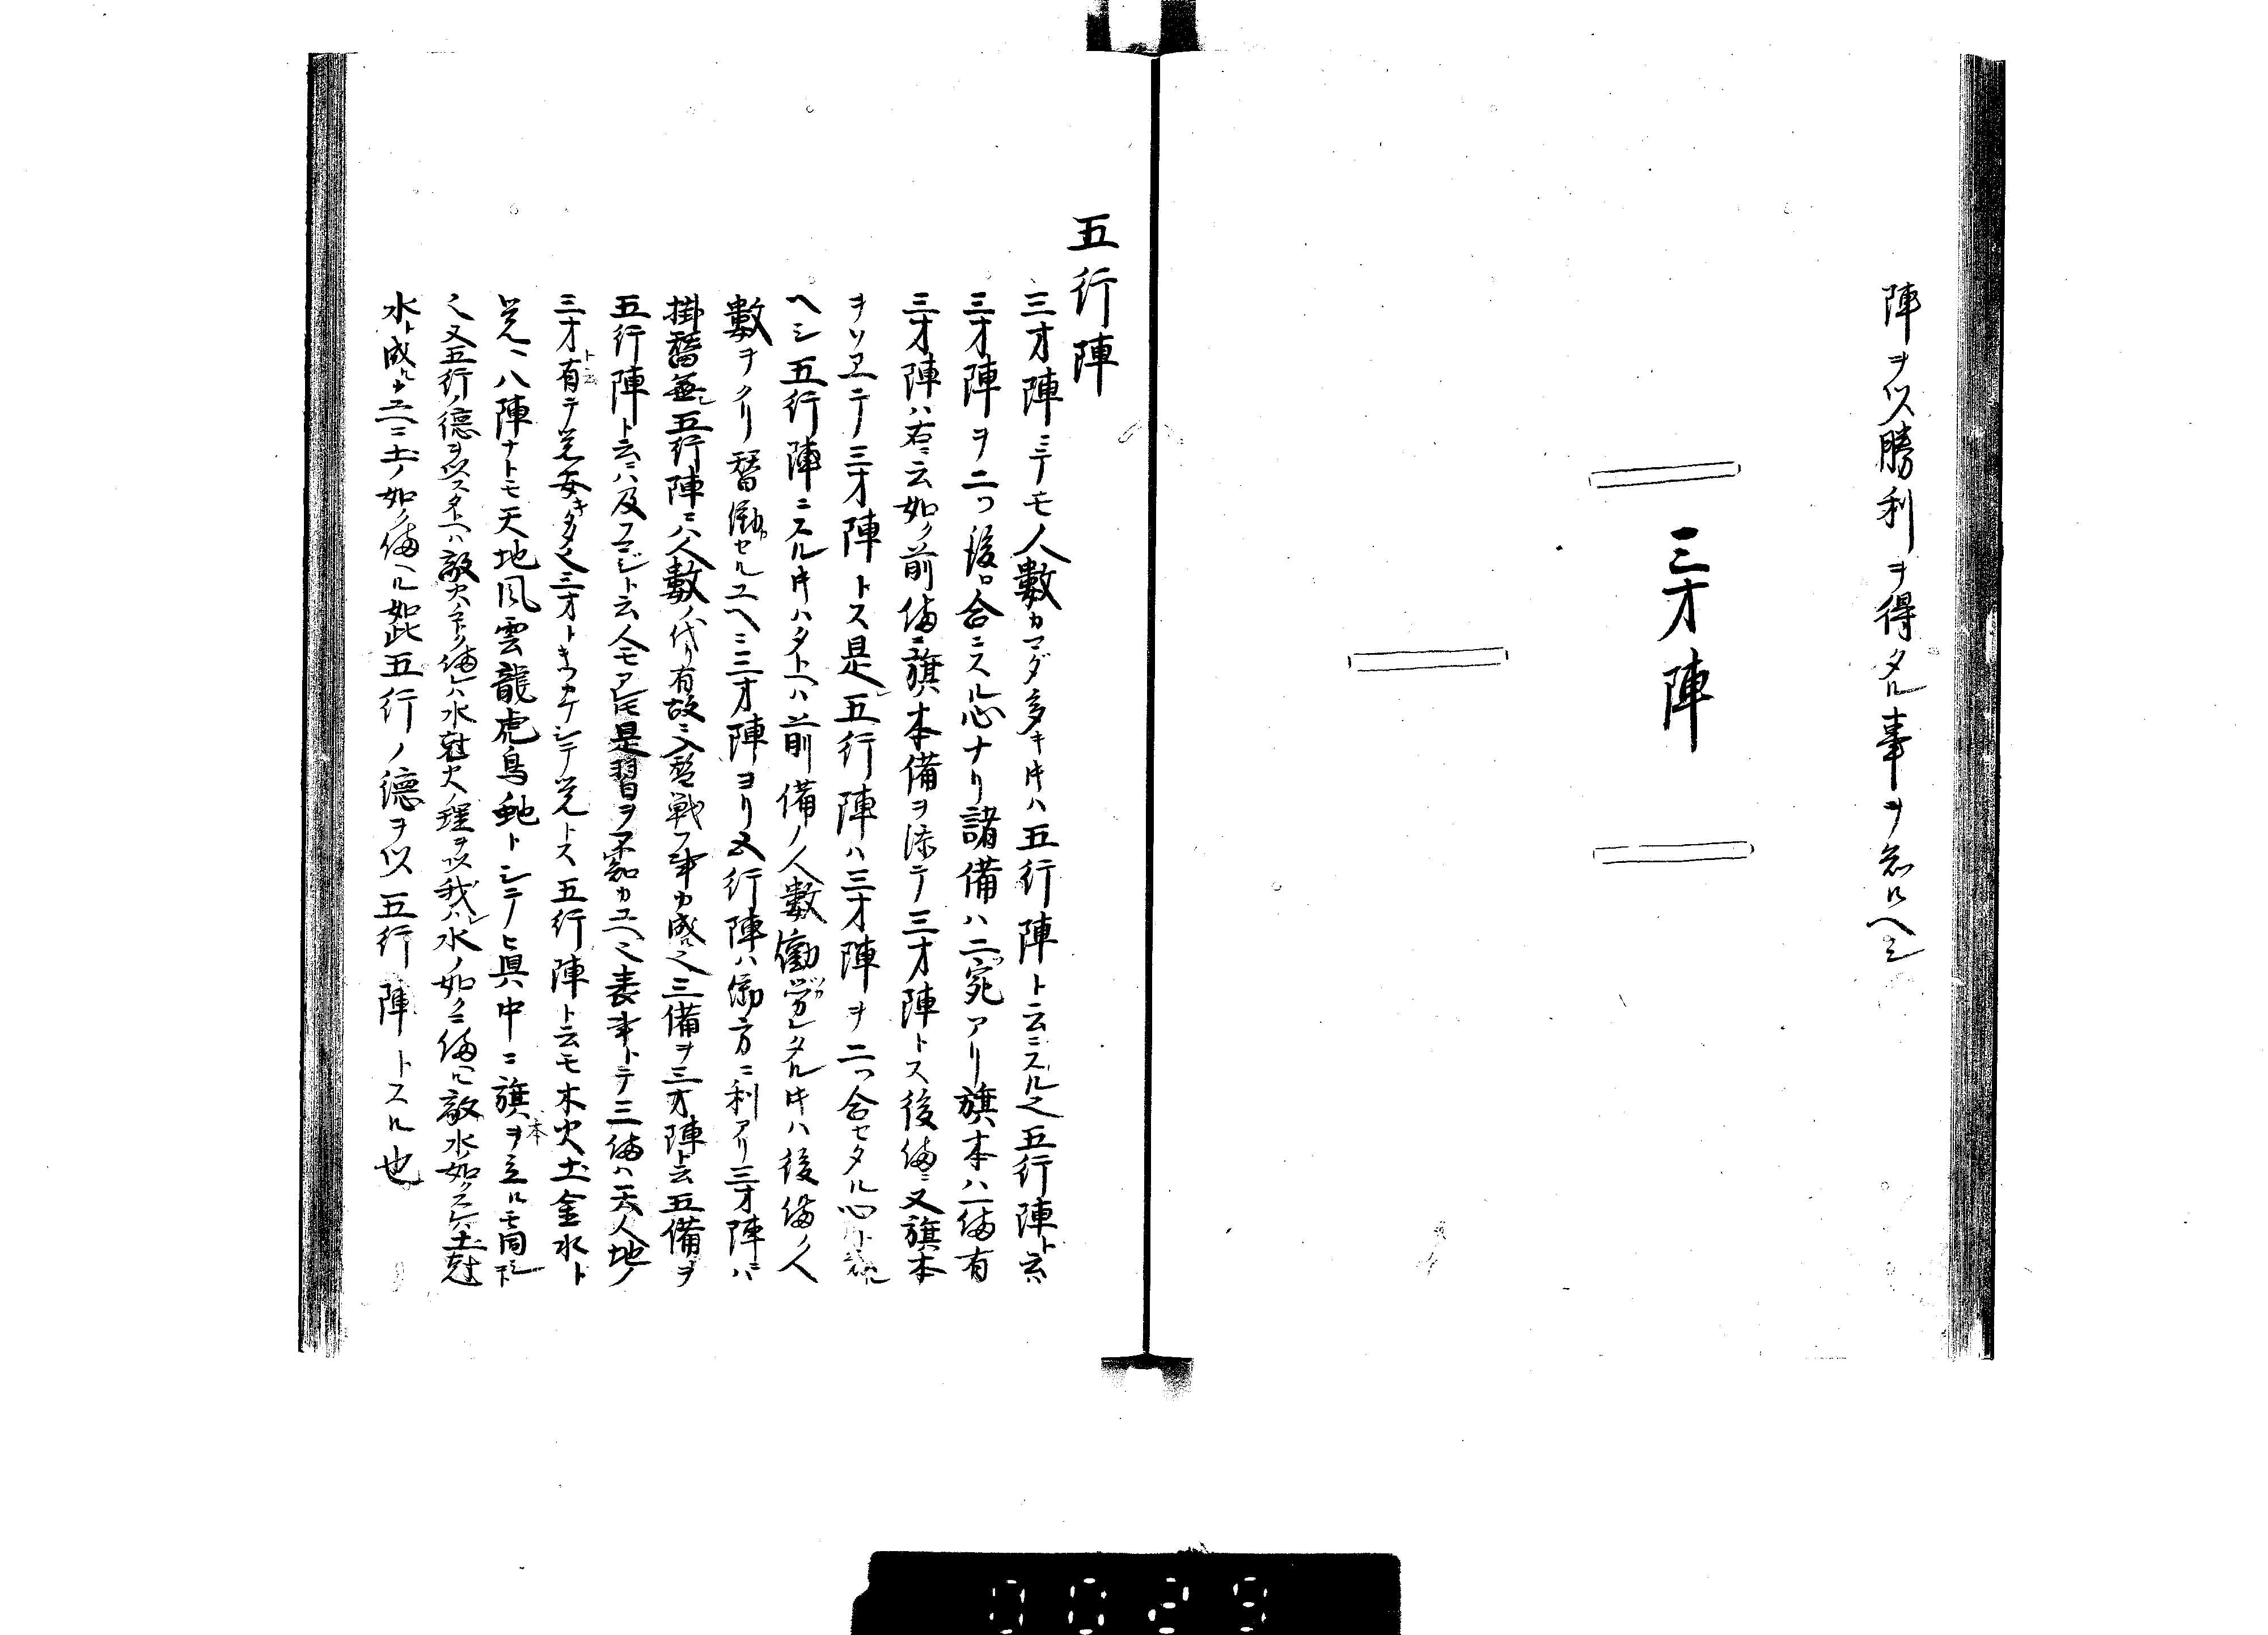 陣ヲ以勝利ヲ得タル事ヲ知ルヘシ
三才陣
五行陣
三才陣ニテモ人數カマダ多キ時ハ五行陣ト云ニスル也五行陣ト云ハ
三才陣ヲ二つ後ロ合ニスル心ナリ諸備ハ二宛アリ旗本ハ一備有
三才陣ハ右ニ云如ク前備ニ旗本備ヲ添テ三才陣トス後備ニ又旗本
ヲソヱテ三才陣トス是五行陣ハ三才陣ヲ二つ合セタル心ト
ヘシ五行陣ニスル時ハタトヘハ前備ノ人數働労レタル時ハ後備ノ人
數ヲクリ替働カセルユヘニ三才陣ヨリ五行陣ハ働方ニ利アリ三才陣ニハ
掛替無シ五行陣ニハ人數ノ代リ有故ニ入替戰フ事カ成ル也三備ヲ三才陣ト云五備ヲ
五行陣ト云ニハ及フマジト云人モアレ𪜈是習ヲ不知カユヘ也表事トテ三備ハ天人地ノ
三才ト云有テ覚安キタメ也三才トキワメテ覚トス五行陣ト云モ木火土金水ト
覚ヘ八陣ナトモ天地風雲龍虎鳥虵トシテノヒ其中ニ旗本ヲ立ルモ同シ
也又五行ノ德ヲ以スタトヘハ敵火ノ如ク備レハ水尅火ノ理ヲ以我ハ水ノ如クニ備ル敵水ノ如クスレハ土尅
水ト成ルユヘニ土ノ如ク備ヘル如此五行ノ德ヲ以五行陣トスル也
0029